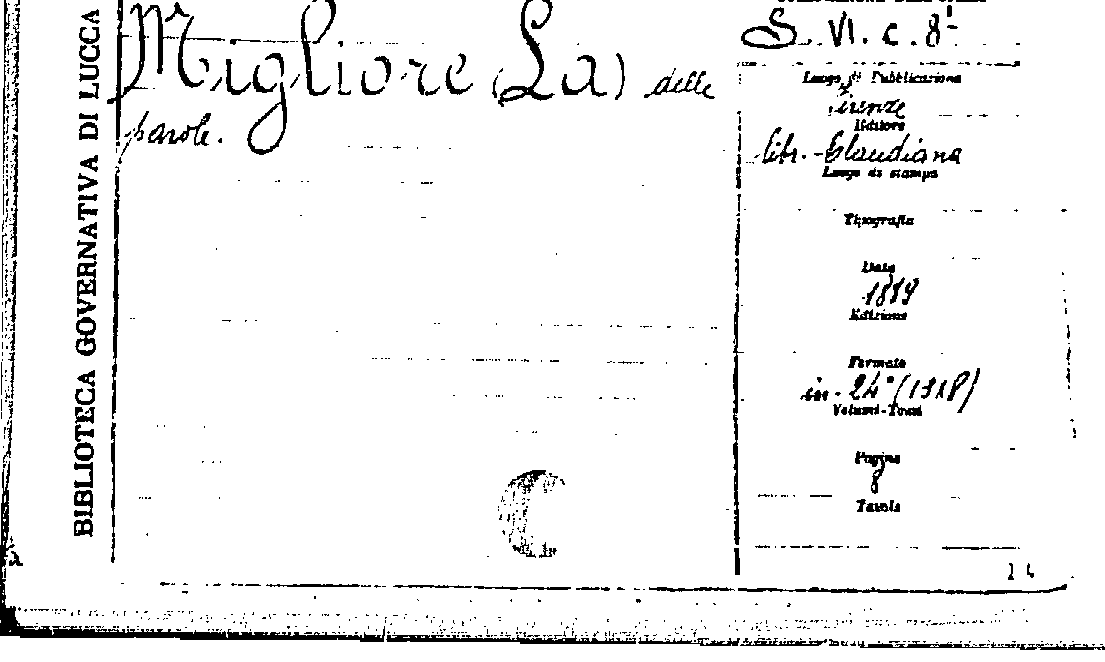 BIBLIOTECA GOVERNATIVA DI LUCCA
Migliore (La) delle
parole.
S. VI. c. 8¹
Luogo di Pubblicazione
Firenze
Editore
libr. Claudiana
Luogo di stampa
Tipografia
Data
1889
Edizione
Formato
in-24° (13x8)
Volumi-Tomi
Pagine
8
Tavole